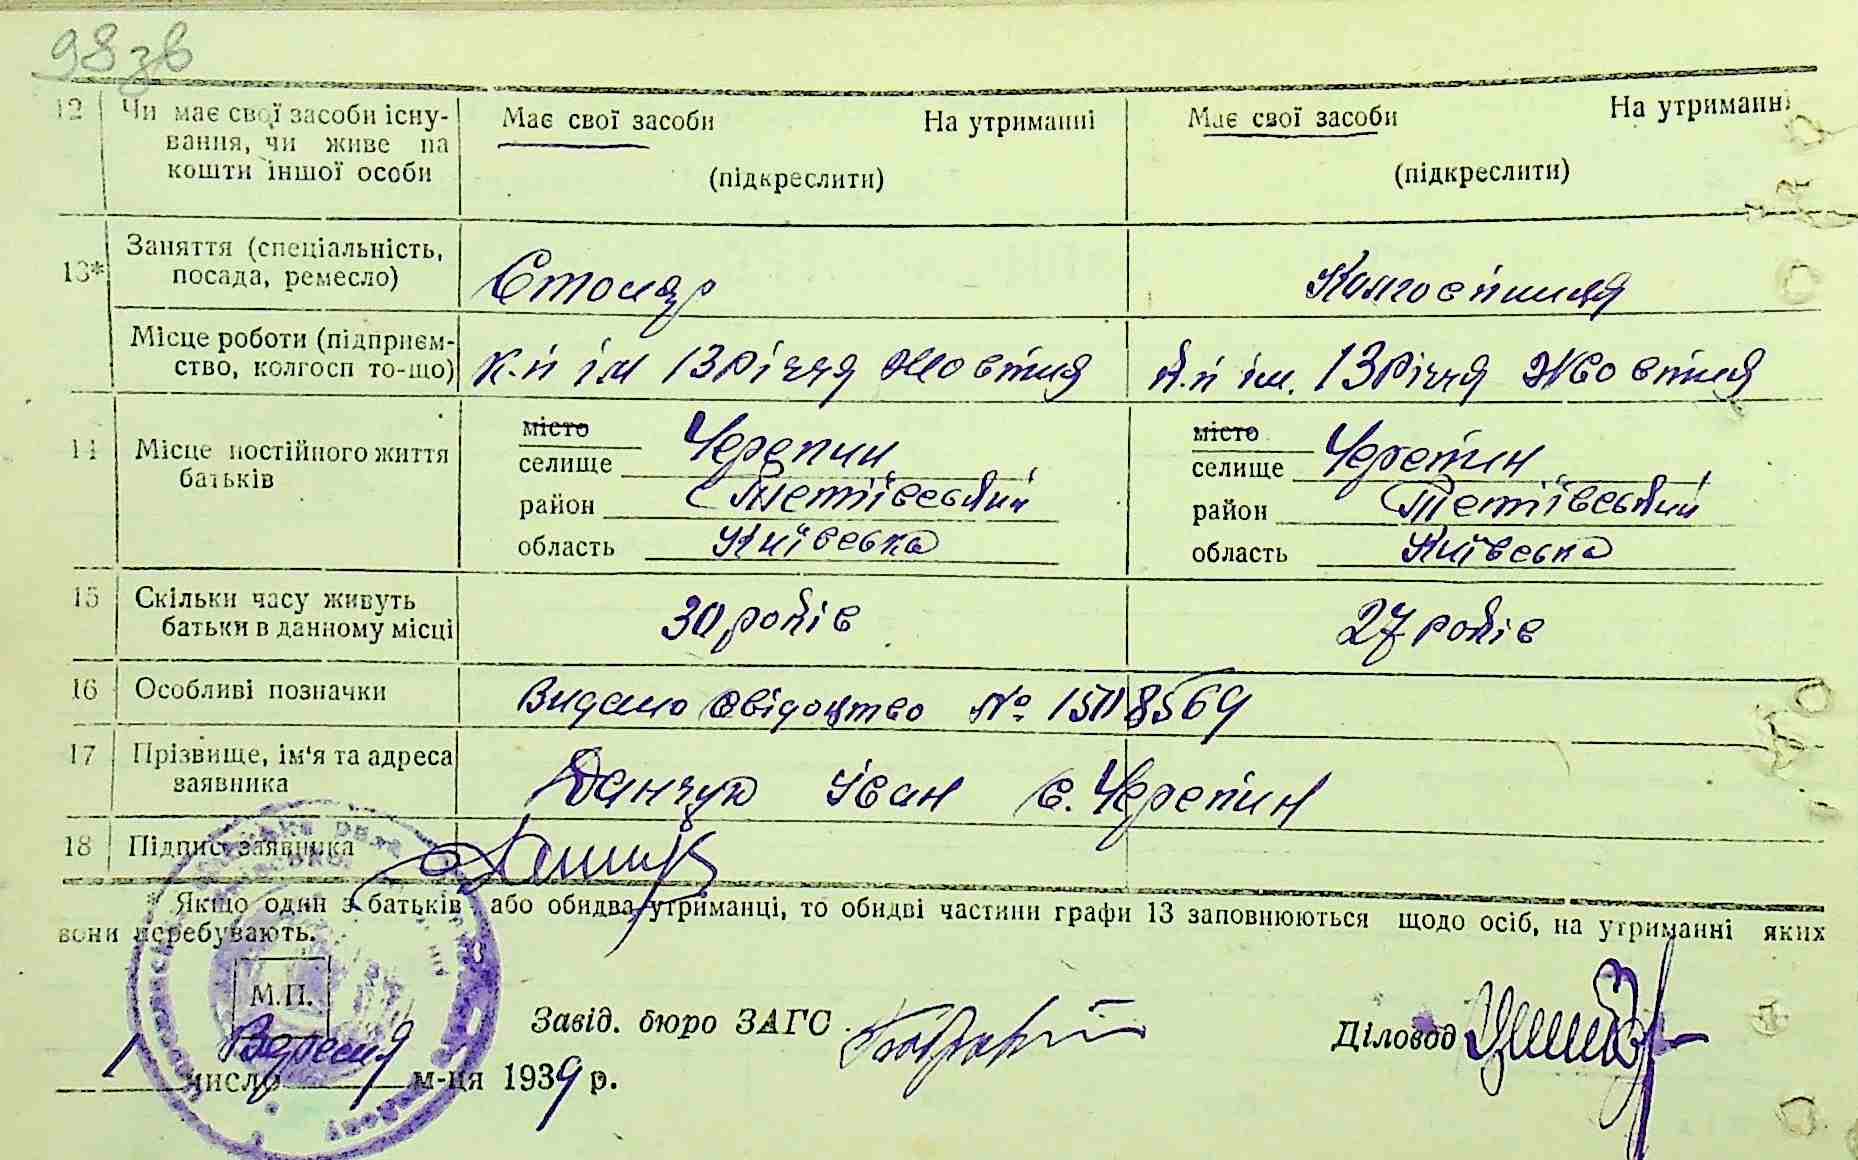 98зв
12 Чи має свої засоби існу- Має свої засоби На утриманні Має свої засоби На утриманні
вання, чи живе на
кошти іншої особи (підкреслити) (підкреслити)
13* Заняття (спеціальність,
посада, ремесло) Столяр Колгоспниця
Місце роботи (підприєм-
ство, колгосп то-що) к.п ім 13 Річчя Жовтня к.п ім. 13 Річчя Жовтня
14 Місце постійного життя
батьків
місто місто
селище Черепин селище Черепин
район Тетіївський район Тетіївський
область Київська область Київська
15 Скільки часу живуть
батьки в данному місці 30 років 27 років
16 Особливі позначки Видано свідоцтво № 15118569
17 Прізвище, ім'я та адреса
заявника Данчук Іван с. Черепин
18 Підпис заявника
Якщо один з батьків або обидва утриманці, то обидві частини графи 13 заповнюються щодо осіб, на утриманні яких
вони перебувають.
М.П.
Завід. бюро ЗАГС Діловод
1 число Вересня м-ця 1939 р.